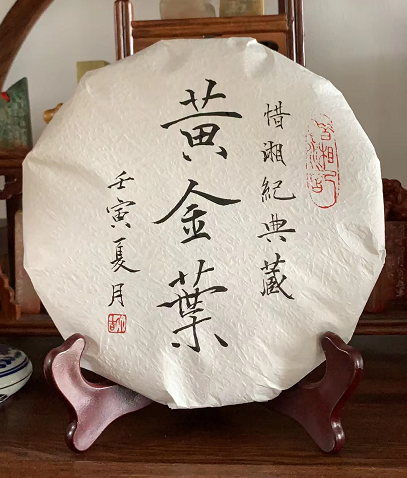 惜湘紀典藏
黃金葉
壬寅夏月